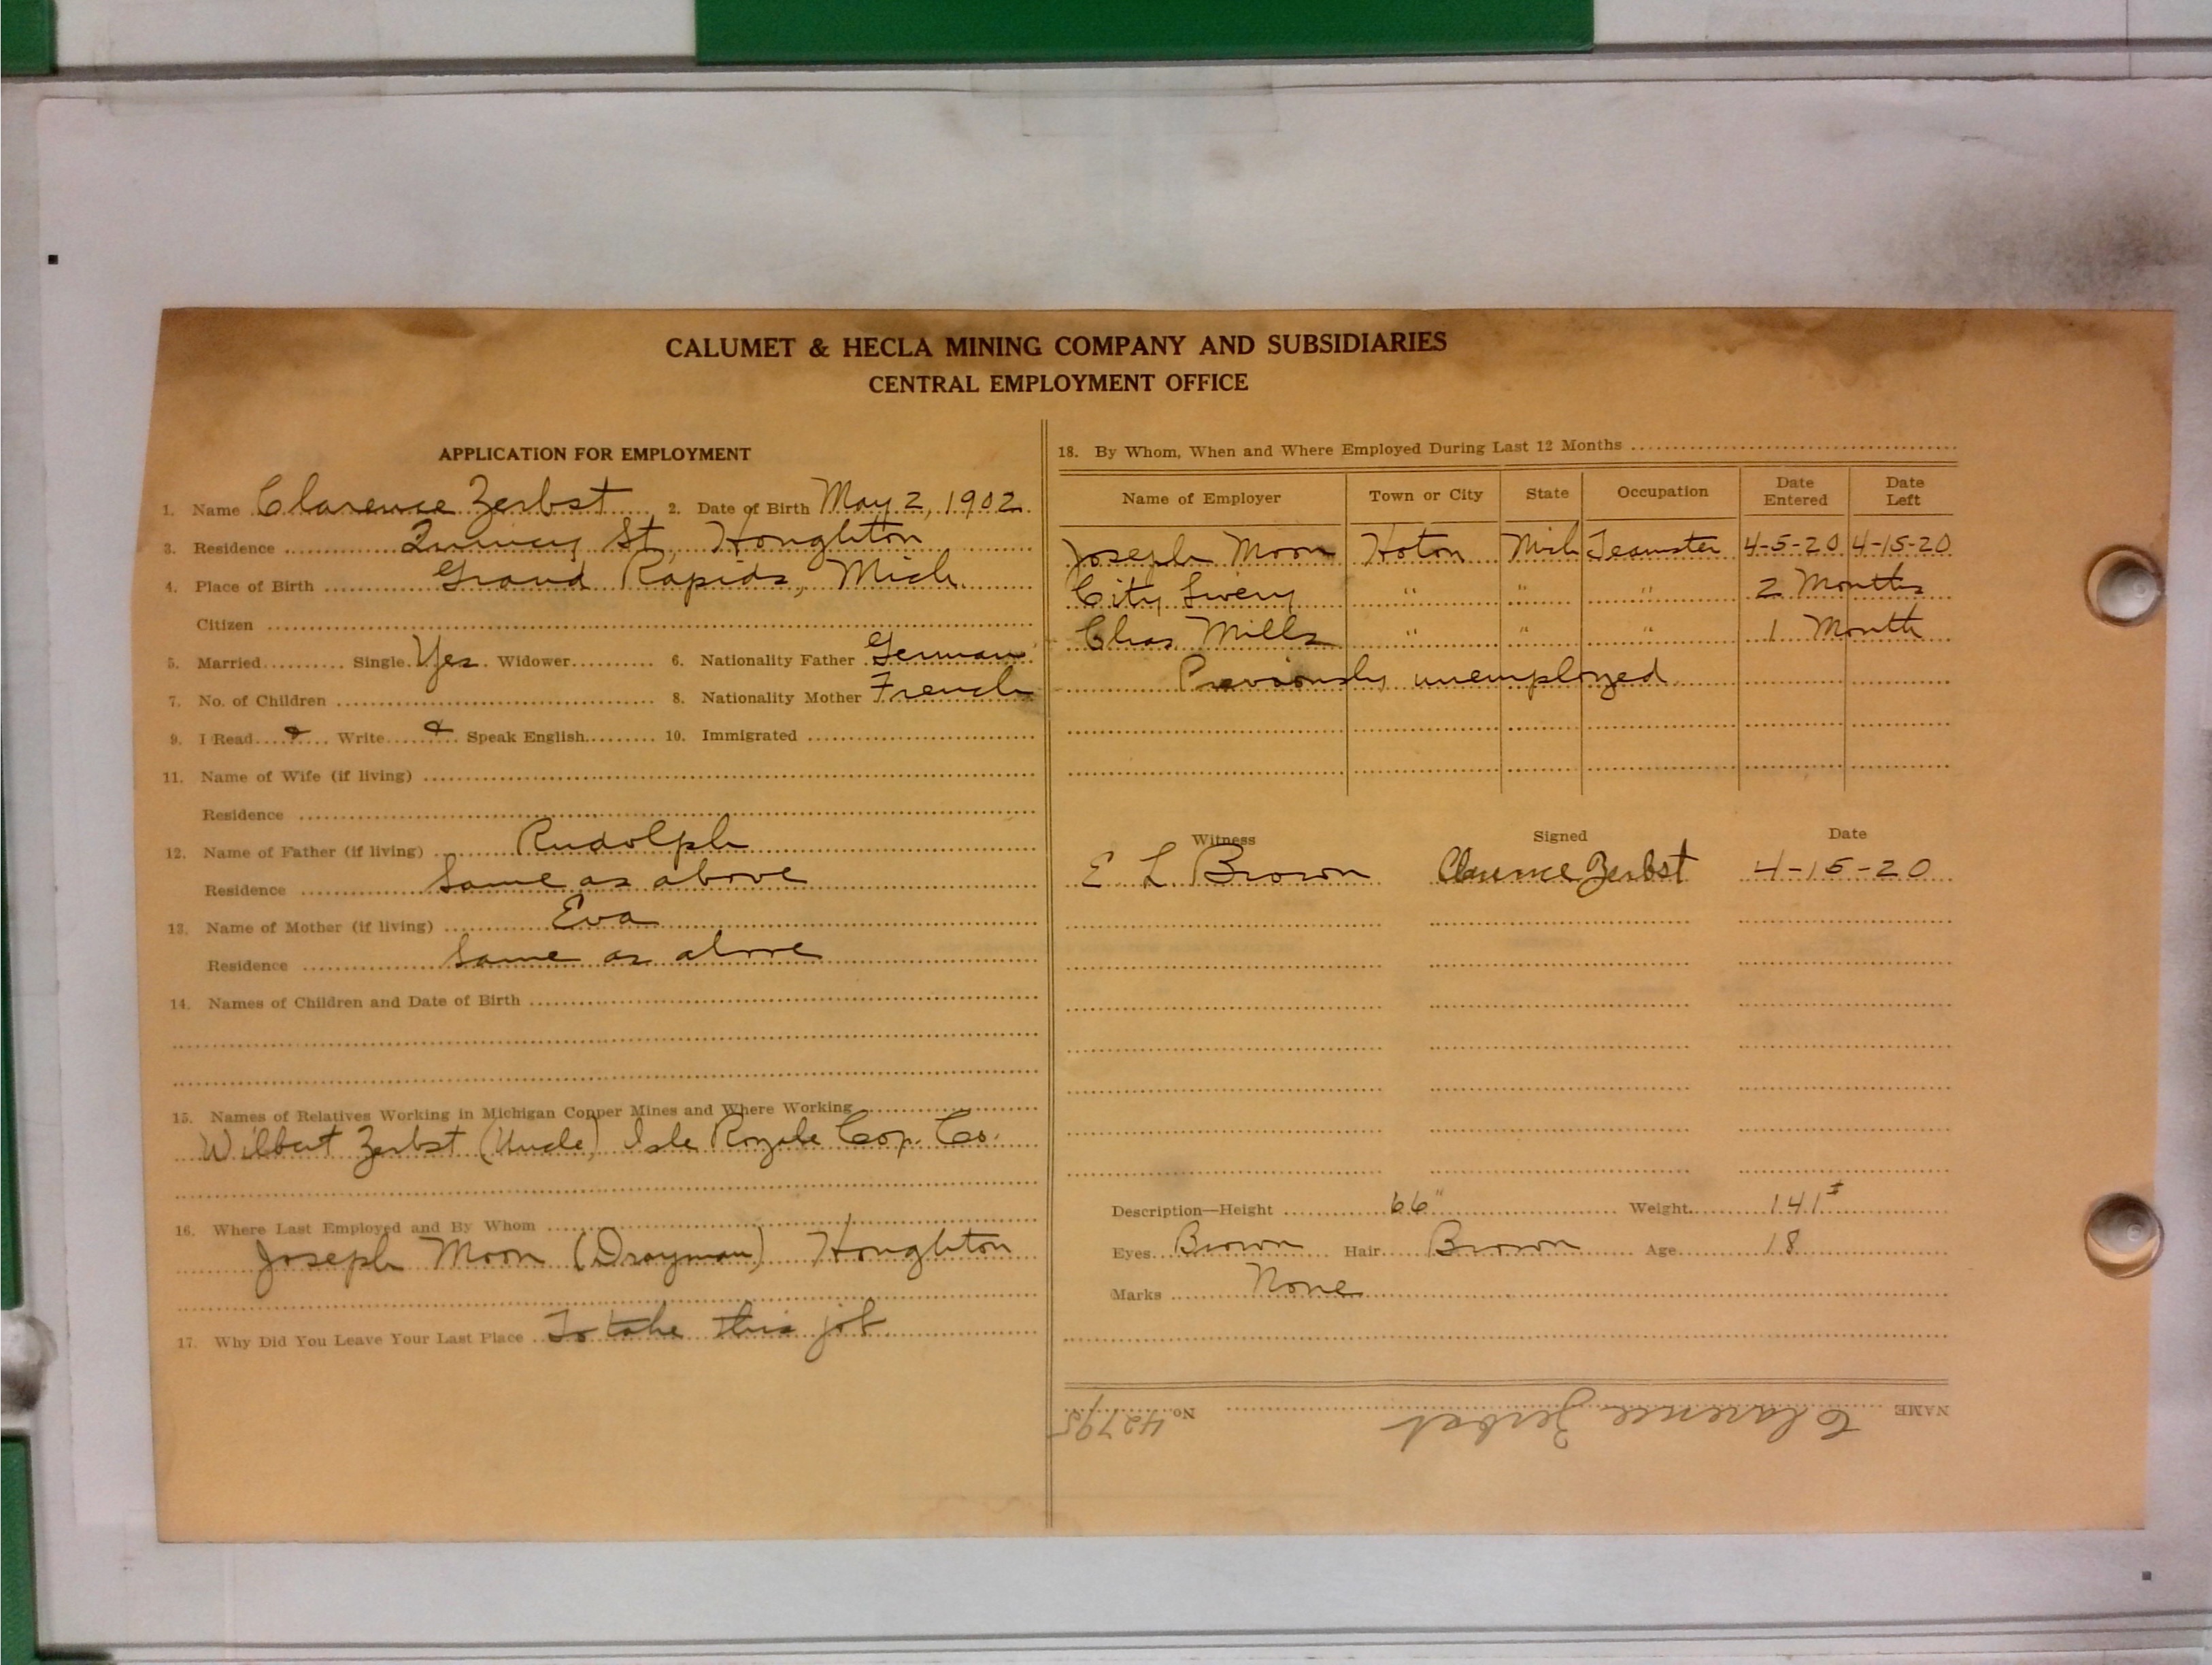 CALUMET & HECLA MINING COMPANY AND SUBSIDIARIES
CENTRAL EMPLOYMENT OFFICE
APPLICATION FOR EMPLOYMENT
1. Name Clarence Zerbst 2. Date of Birth May 2, 1902
3. Residence Quincy St, Houghton
4. Place of Birth Grand Rapids, Mich.
Citizen
5. Married Single Yes Widower 6. Nationality Father German
7. No. of Children 8. Nationality Mother French
9. I Read & Write & Speak English 10. Immigrated
11. Name of Wife (if living)
Residence
12. Name of Father (if living) Rudolph
Residence Same as above
13. Name of Mother (if living) Eva
Residence Same as above
14. Names of Children and Date of Birth
15. Names of Relatives Working in Michigan Copper Mines and Where Working
Wilbert Zerbst (Uncle) Isle Royale Cop. Co.
16. Where Last Employed and By Whom
Joseph Moon (Drayman) Houghton
17. Why Did You Leave Your Last Place To take this job
18. By Whom, When and Where Employed During Last 12 Months
Name of Employer Town or City State Occupation Date Entered Date Left
Joseph Moon Hoton Mich Teamster 4-5-20 4-15-20
City Livery " " " 2 Months
Chas. Mills " " " 1 Month
Previously unemployed
Witness Signed Date
E L Brown Clarence Zerbst 4-15-20
Description—Height 66" Weight 141#
Eyes Brown Hair Brown Age 18
Marks None
NAME Clarence Zerbst No. 42795